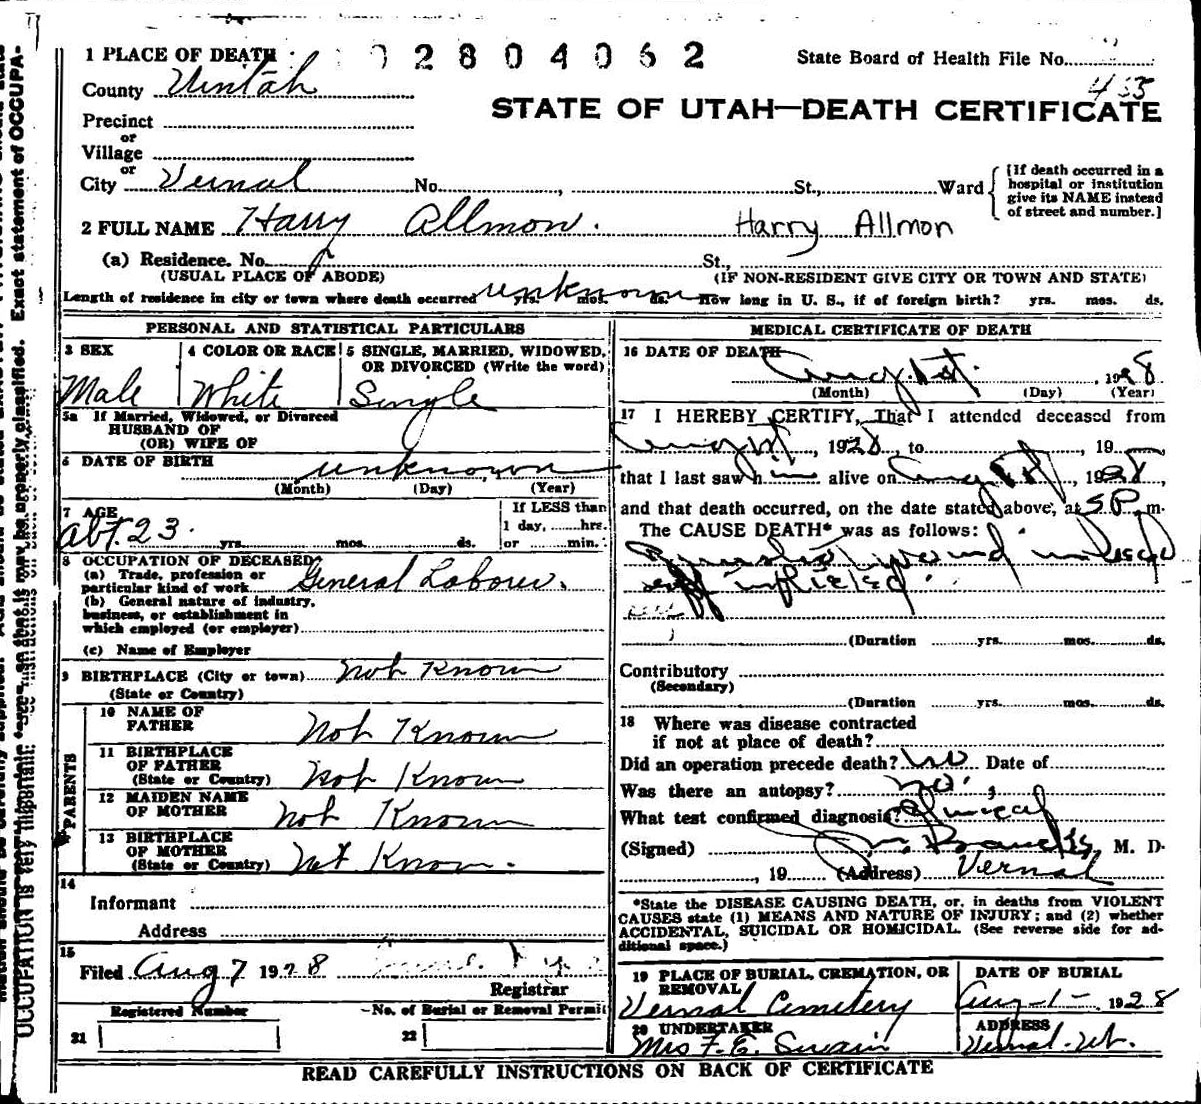 1 PLACE OF DEATH 2804062 State Board of Health File No. 455
County Uintah
STATE OF UTAH—DEATH CERTIFICATE
Precinct
or
Village
or
City Vernal No. , St., Ward
[If death occurred in a hospital or institution give its NAME instead of street and number.]
2 FULL NAME Harry Allmon. Harry Allmon
(a) Residence. No. St.,
(USUAL PLACE OF ABODE) (IF NON-RESIDENT GIVE CITY OR TOWN AND STATE)
Length of residence in city or town where death occurred unknown yrs. mos. ds. How long in U. S., if of foreign birth? yrs. mos. ds.
PERSONAL AND STATISTICAL PARTICULARS
3 SEX
Male
4 COLOR OR RACE
White
5 SINGLE, MARRIED, WIDOWED, OR DIVORCED (Write the word)
Single
5a If Married, Widowed, or Divorced
HUSBAND OF
(OR) WIFE OF
6 DATE OF BIRTH unknown
(Month) (Day) (Year)
7 AGE
abt. 23. yrs. mos. ds.
If LESS than
1 day, hrs.
or min.
8 OCCUPATION OF DECEASED
(a) Trade, profession or
particular kind of work General Laborer.
(b) General nature of industry,
business, or establishment in
which employed (or employer)
(c) Name of Employer
9 BIRTHPLACE (City or town) Not Known
(State or Country)
PARENTS
10 NAME OF
FATHER Not Known
11 BIRTHPLACE
OF FATHER
(State or Country) Not Known
12 MAIDEN NAME
OF MOTHER Not Known
13 BIRTHPLACE
OF MOTHER
(State or Country) Not Known.
14
Informant
Address
15
Filed Aug 7 1928
Registrar
Registered Number
21
No. of Burial or Removal Permit
22
MEDICAL CERTIFICATE OF DEATH
16 DATE OF DEATH
Aug. 1st. , 1928
(Month) (Day) (Year)
17 I HEREBY CERTIFY, That I attended deceased from
Aug 1st , 1928 to , 19
that I last saw him alive on Aug 1st , 1928,
and that death occurred, on the date stated above, at 5P m.
The CAUSE DEATH* was as follows:
Gunshot wound in head
self inflicted.
(Duration yrs. mos. ds.
Contributory
(Secondary)
(Duration yrs. mos. ds.
18 Where was disease contracted
if not at place of death?
Did an operation precede death? no Date of
Was there an autopsy? no.
What test confirmed diagnosis? Clinical
(Signed) M. D.
, 19 (Address) Vernal
*State the DISEASE CAUSING DEATH, or, in deaths from VIOLENT
CAUSES state (1) MEANS AND NATURE OF INJURY; and (2) whether
ACCIDENTAL, SUICIDAL OR HOMICIDAL. (See reverse side for ad-
ditional space.)
19 PLACE OF BURIAL, CREMATION, OR
REMOVAL
Vernal Cemetery
DATE OF BURIAL
Aug-1- 1928
20 UNDERTAKER
Mrs F. E. Swain
ADDRESS
Vernal-Ut.
READ CAREFULLY INSTRUCTIONS ON BACK OF CERTIFICATE
Exact statement of OCCUPA-
OCCUPATION is very important.